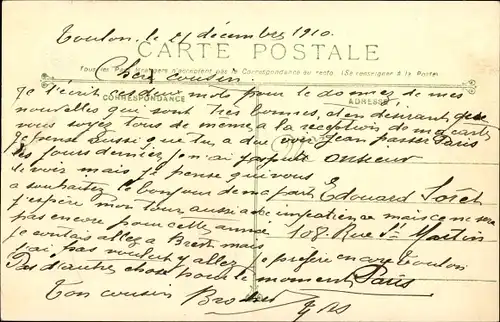 Toulon, le 21 décembre 1910.
CARTE POSTALE
Tous les Pays étrangers n'acceptent pas la Correspondance au recto. (Se renseigner à la Poste)
Cher cousin,
Je t'écrit ces deux mots pour te donner de mes
CORRESPONDANCE
ADRESSE
nouvelles qui sont très bonnes, et en désirant que
vous soyez tous de même a la reception de ma carte
Je pense aussi que tu a due voir Jean passer Paris
ces jours derniers, j'en ai pas pu te
Monsieur
le voir mais je pense qui vous
a souhaiter le bonjour de ma part
Edouard
j'espère mon tour aussi avec impatience mais ce ne sera
pas encore pour cette année
108. Rue St Martin
je voulais allez a Brest mais
j'ai pas voulut y allez
je préfère encore Toulon
Pas d'autres chose pour le moment
Paris
Ton cousin